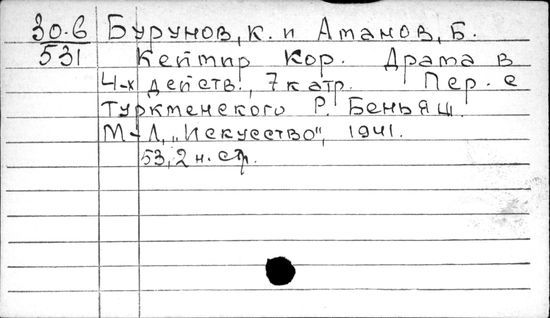 30-6 Бурунов, К. и Аманов, Б.
531 Кеймир Кор. Драма в
4-х действ., 7 карт. Пер. с
туркменского Р. Беньяш.
М-Л, „Искусство“, 1941.
53, 2 н. стр.